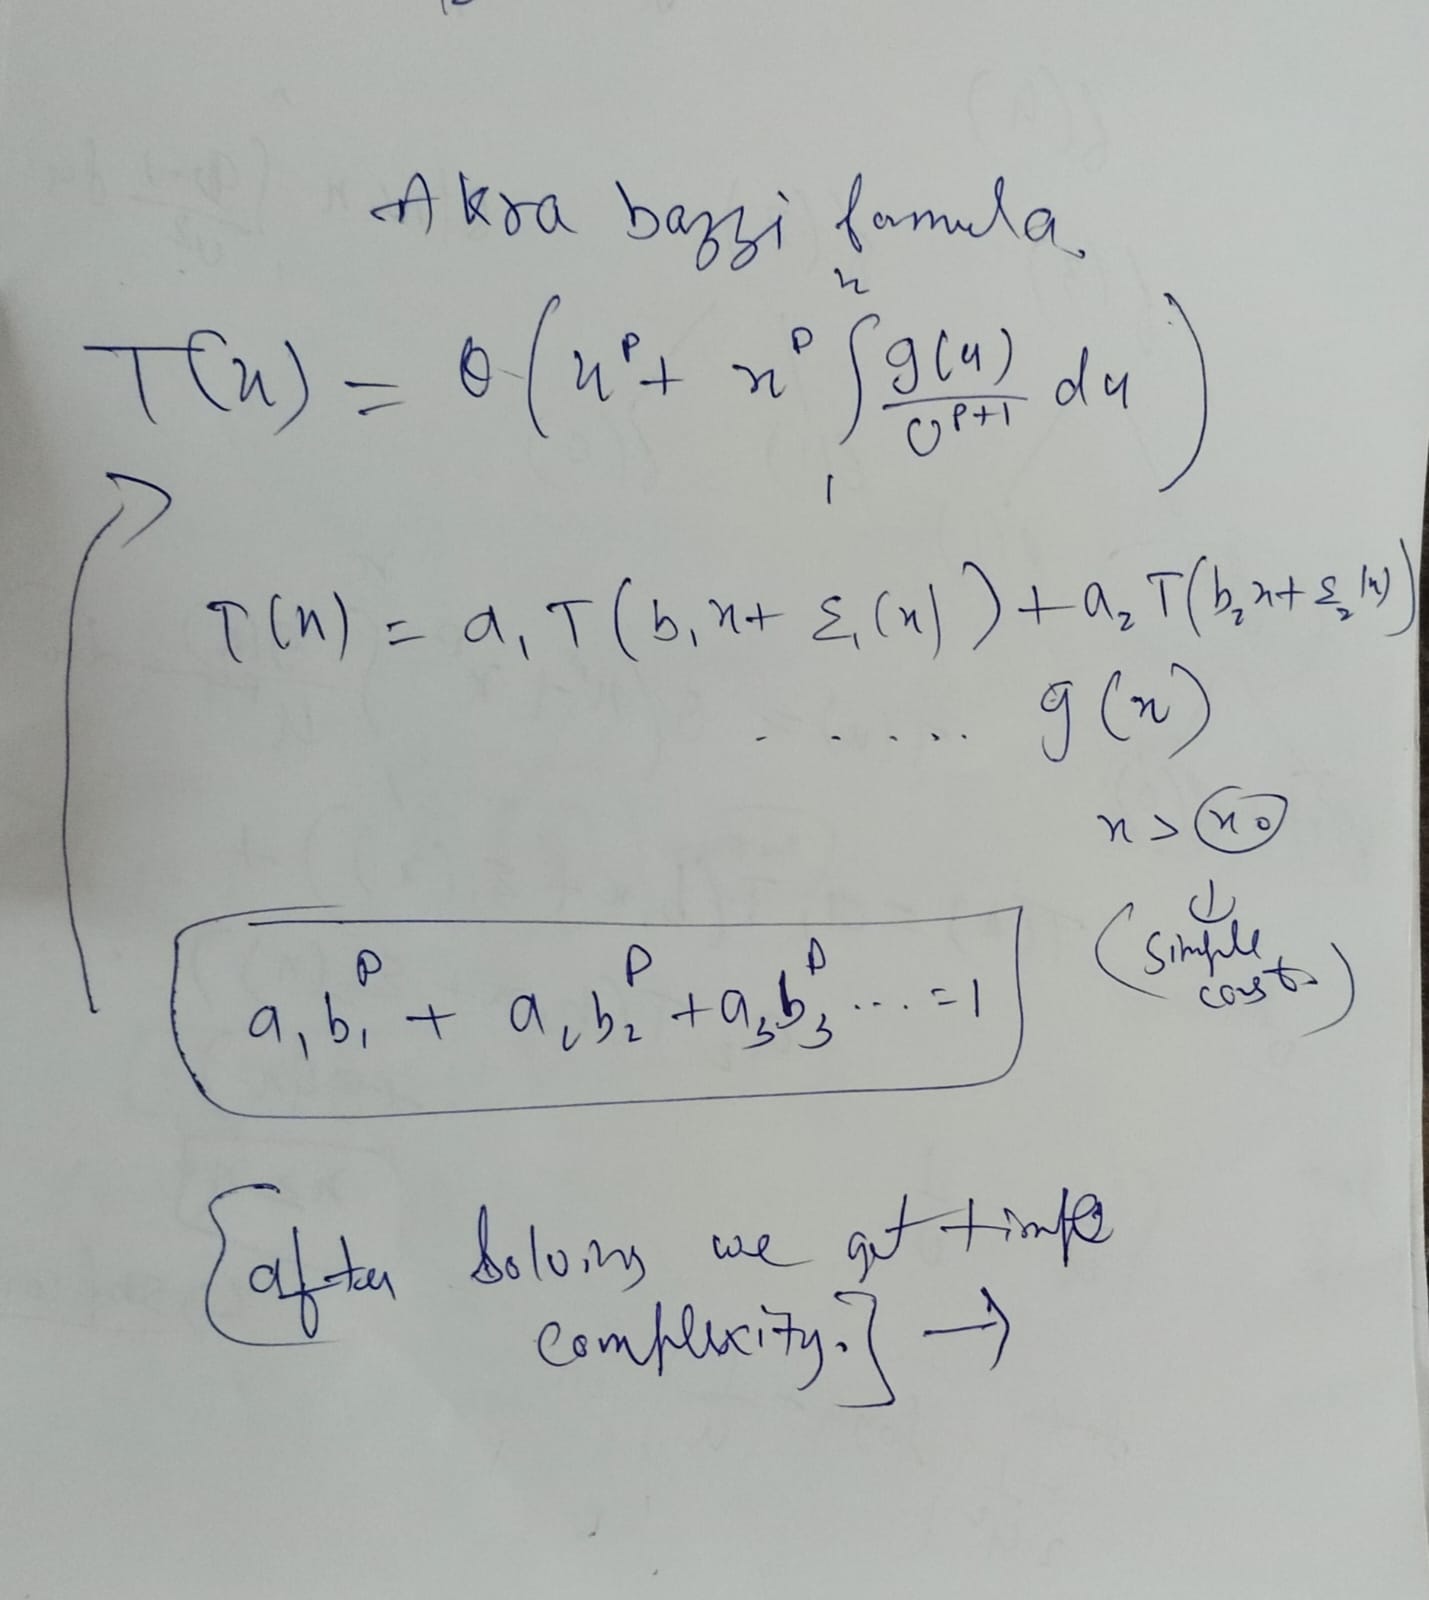 Akra bazzi formula
T(x) = θ(x^p + x^p ∫_1^x g(u)/u^(p+1) du)
T(n) = a₁T(b₁n + ε₁(n)) + a₂T(b₂n + ε₂(n))
..... g(n)
n > n₀
↓
(simple const.)
a₁b₁^p + a₂b₂^p + a₃b₃^p ... = 1
{after solving we get time
complexity.} →